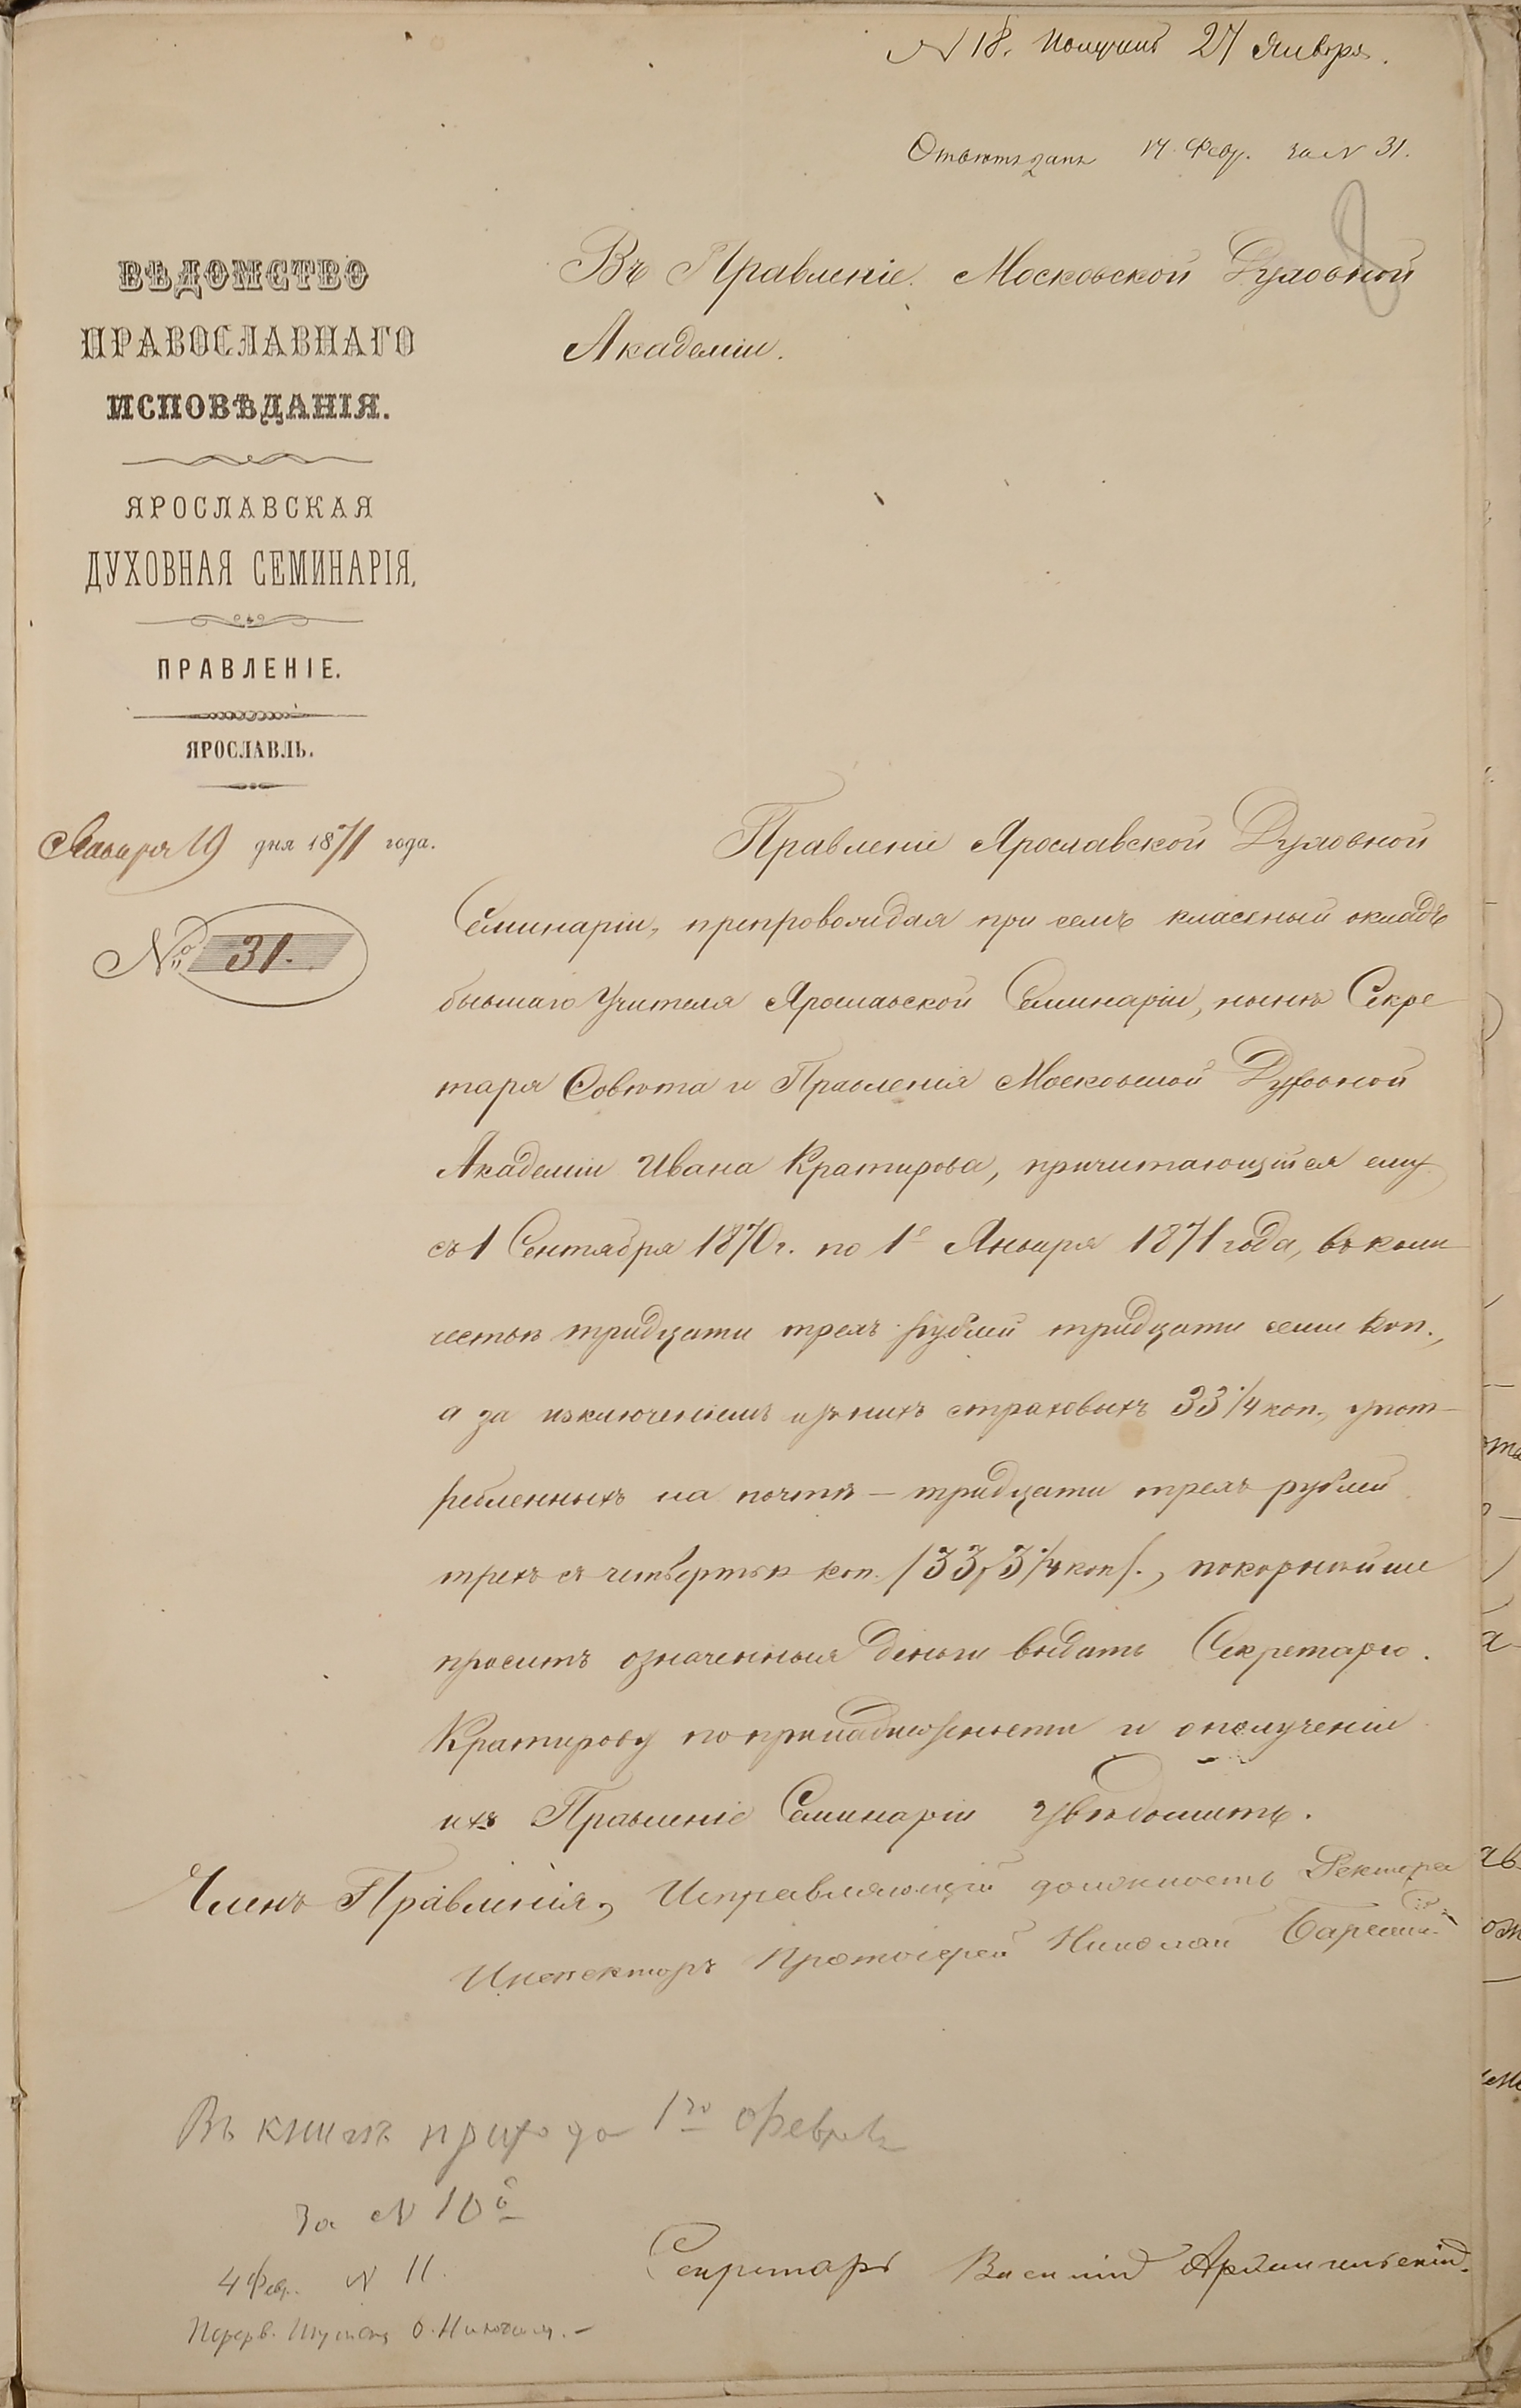 N 18. Получено 27 Января.
Отвѣтъ данъ 17 Февр. за N 31.
8
ВѢДОМСТВО
ПРАВОСЛАВНАГО
ИСПОВѢДАНІЯ.
ЯРОСЛАВСКАЯ
ДУХОВНАЯ СЕМИНАРІЯ,
ПРАВЛЕНІЕ.
ЯРОСЛАВЛЬ.
Января 19 дня 1871 года.
№ 31.
Въ Правленіе Московской Духовной
Академіи.
Правленіе Ярославской Духовной
Семинаріи, препровождая при семъ классный окладъ
бывшаго Учителя Ярославской Семинаріи, нынѣ Секре
таря Совѣта и Правленія Московской Духовной
Академіи Ивана Кратирова, причитающійся ему
съ 1 Сентября 1870 г. по 1е Января 1871 года, въ коли
чествѣ тридцати трехъ рублей тридцати семи коп.,
а за исключеніемъ изъ нихъ страховыхъ 33 1/4 коп., упот-
ребленныхъ на почтѣ – тридцати трехъ рублей
трехъ съ четвертью коп. /33, 3 1/4 коп/., покорнѣйше
проситъ означенныя деньги выдать Секретарю
Кратирову по принадлежности и о полученіи
ихъ Правленіе Семинаріи увѣдомить.
Членъ Правленія, Исправляющій должность Ректора
Инспекторъ Протоіерей Николай
Въ книгѣ прихода 1го Февраля
за N 10
4 Февр. N 11.
Секретарь Василій Архангельскій.